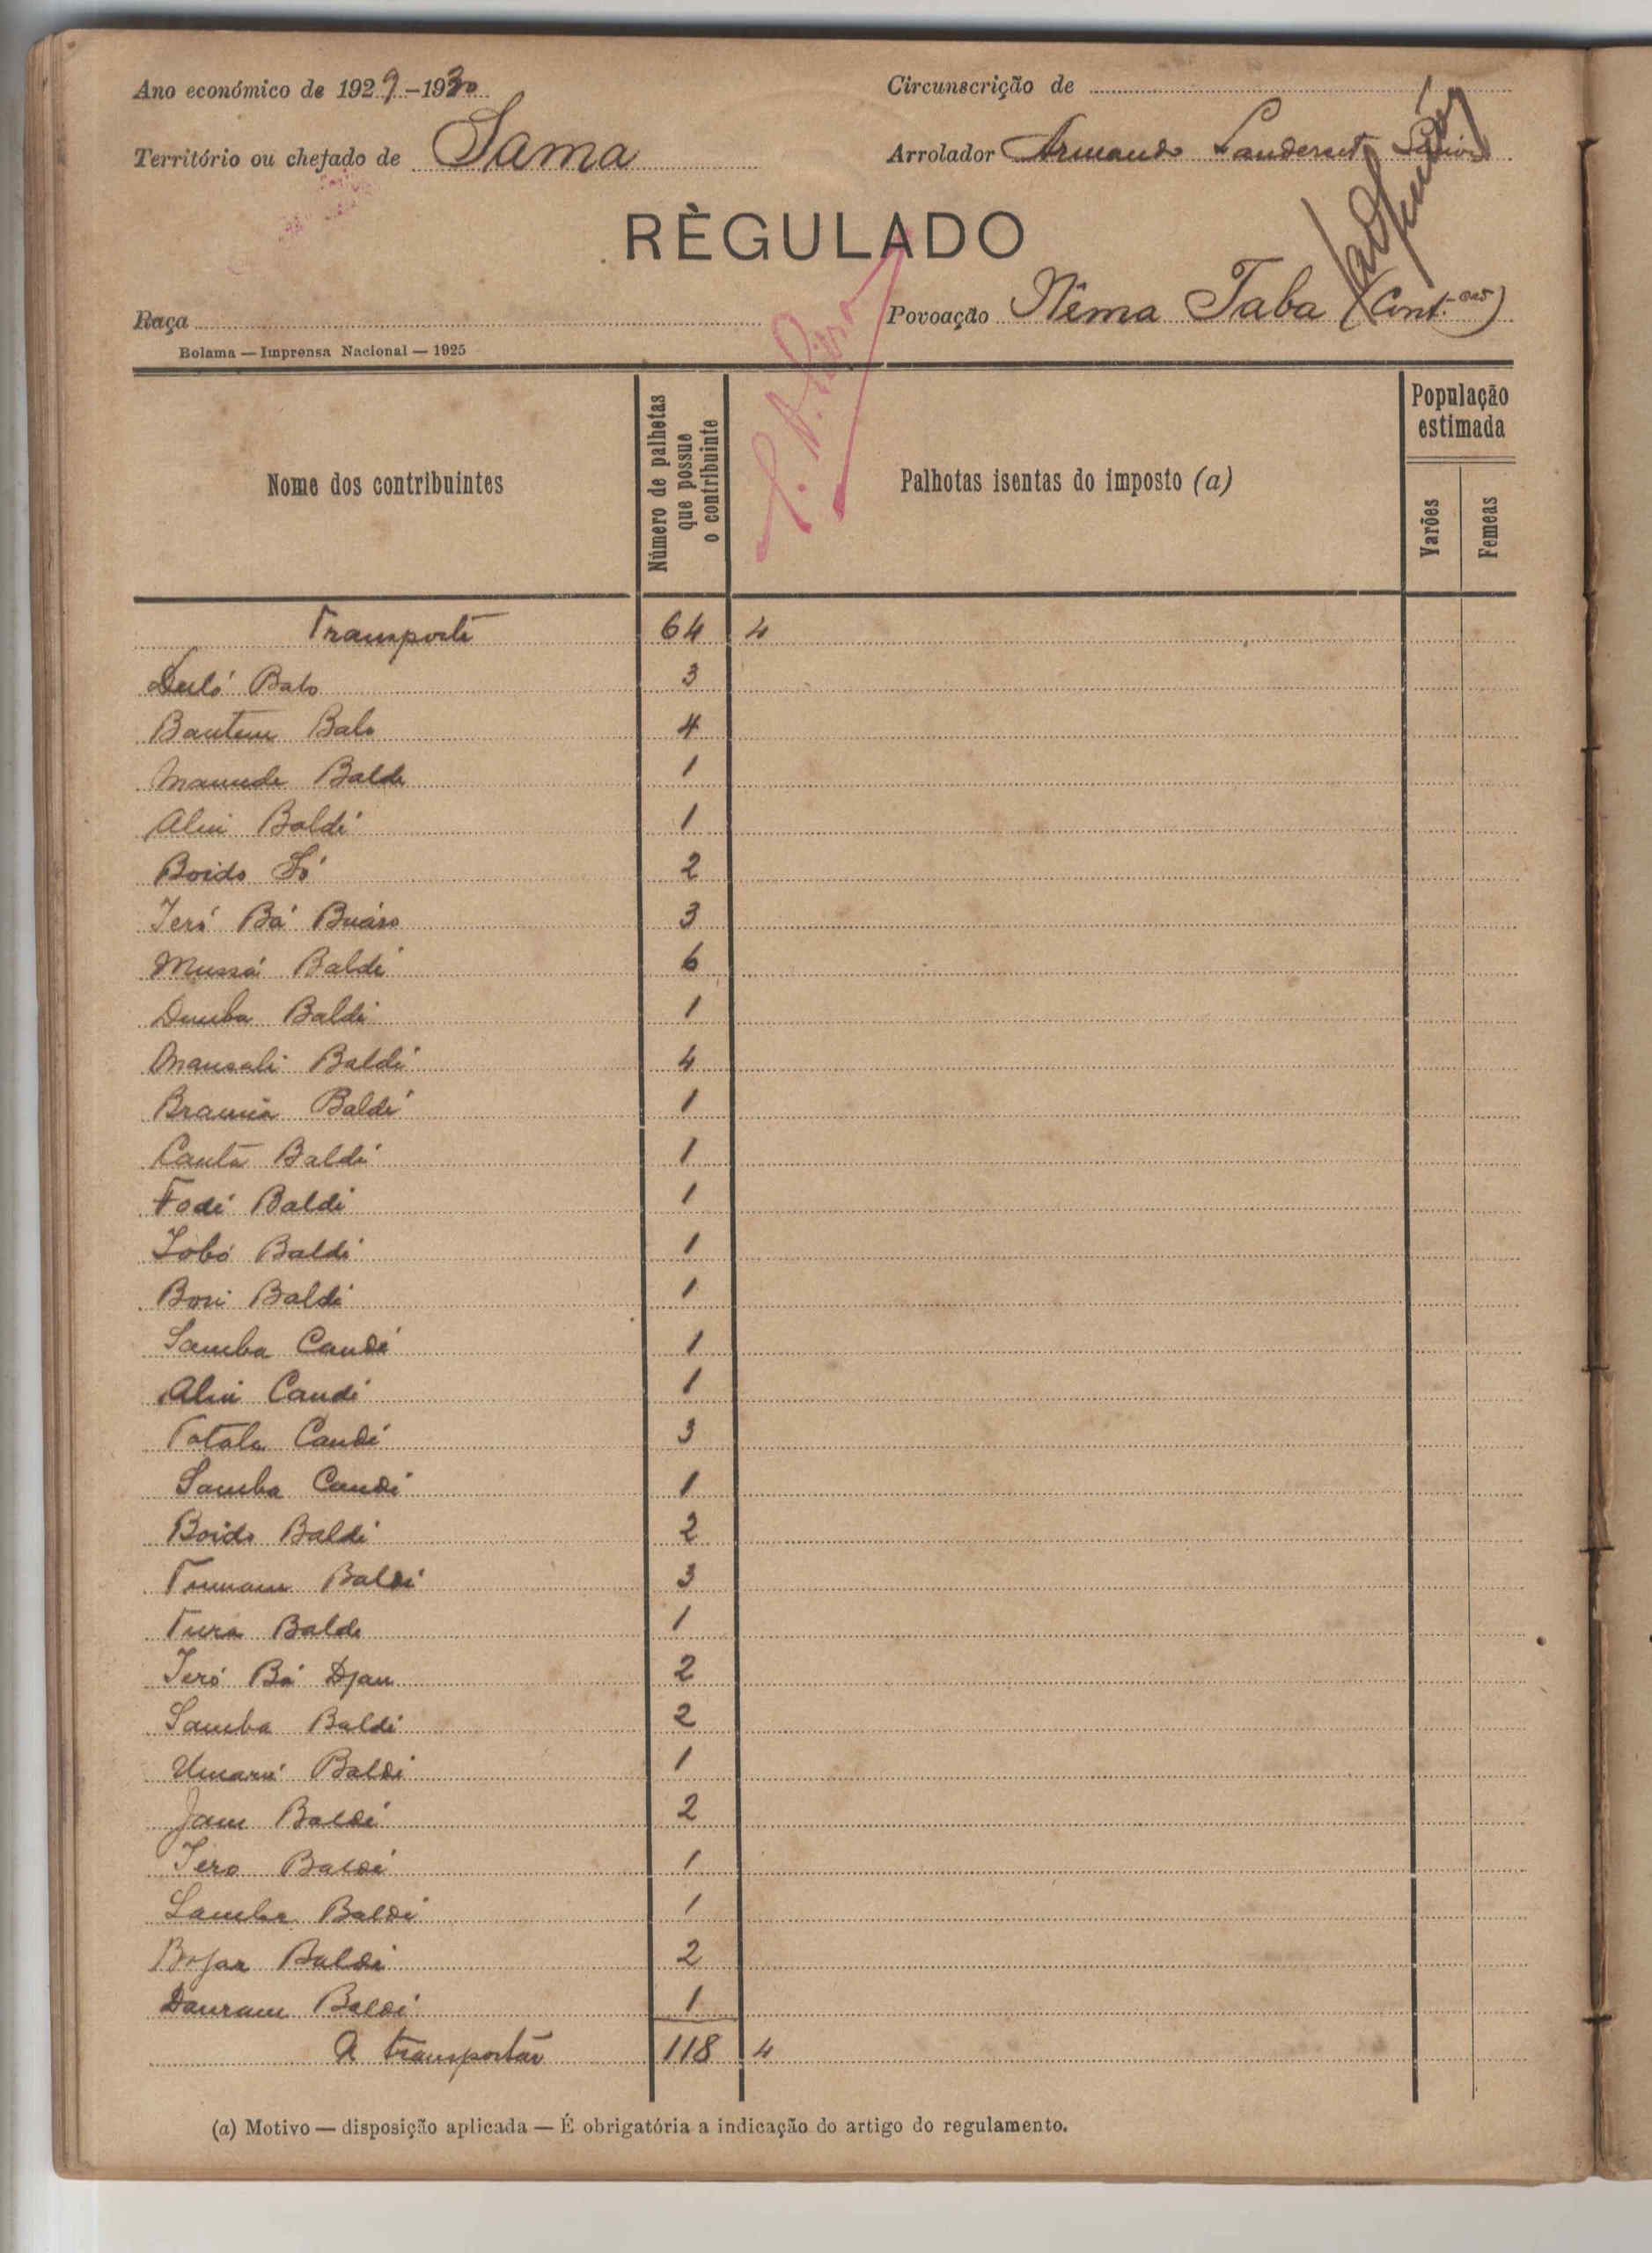 Ano económico de 1929-1930
Circunscrição de
Território ou chefado de Sama
Arrolador Armando Landerset
RÈGULADO
Raça
Povoação Nêma Taba (Cont.)
Bolama — Imprensa Nacional — 1925
Nome dos contribuintes
Número de palhetas que possue o contribuinte
Palhotas isentas do imposto (a)
População estimada
Varões
Femeas
Transporte 64 4
Balo 3
Balo 4
Mamude Balde 1
Aliu Baldé 1
Boido Só 2
Jeró Bá 3
Mussá Baldé 6
Demba Baldé 1
Mansali Baldé 4
Braima Baldé 1
Canta Baldé 1
Fodé Baldé 1
Jobó Baldé 1
Baldé 1
Samba Candé 1
Aliu Candé 1
Candé 3
Samba Candé 1
Boido Baldé 2
Baldé 3
Tura Balde 1
Jeró Bá Djau 2
Samba Baldé 2
Umarú Baldé 1
Jam Baldé 2
Jero Baldé 1
Samba Baldé 1
Baldé 2
Dauram Baldé 1
A transportar 118 4
(a) Motivo — disposição aplicada — É obrigatória a indicação do artigo do regulamento.